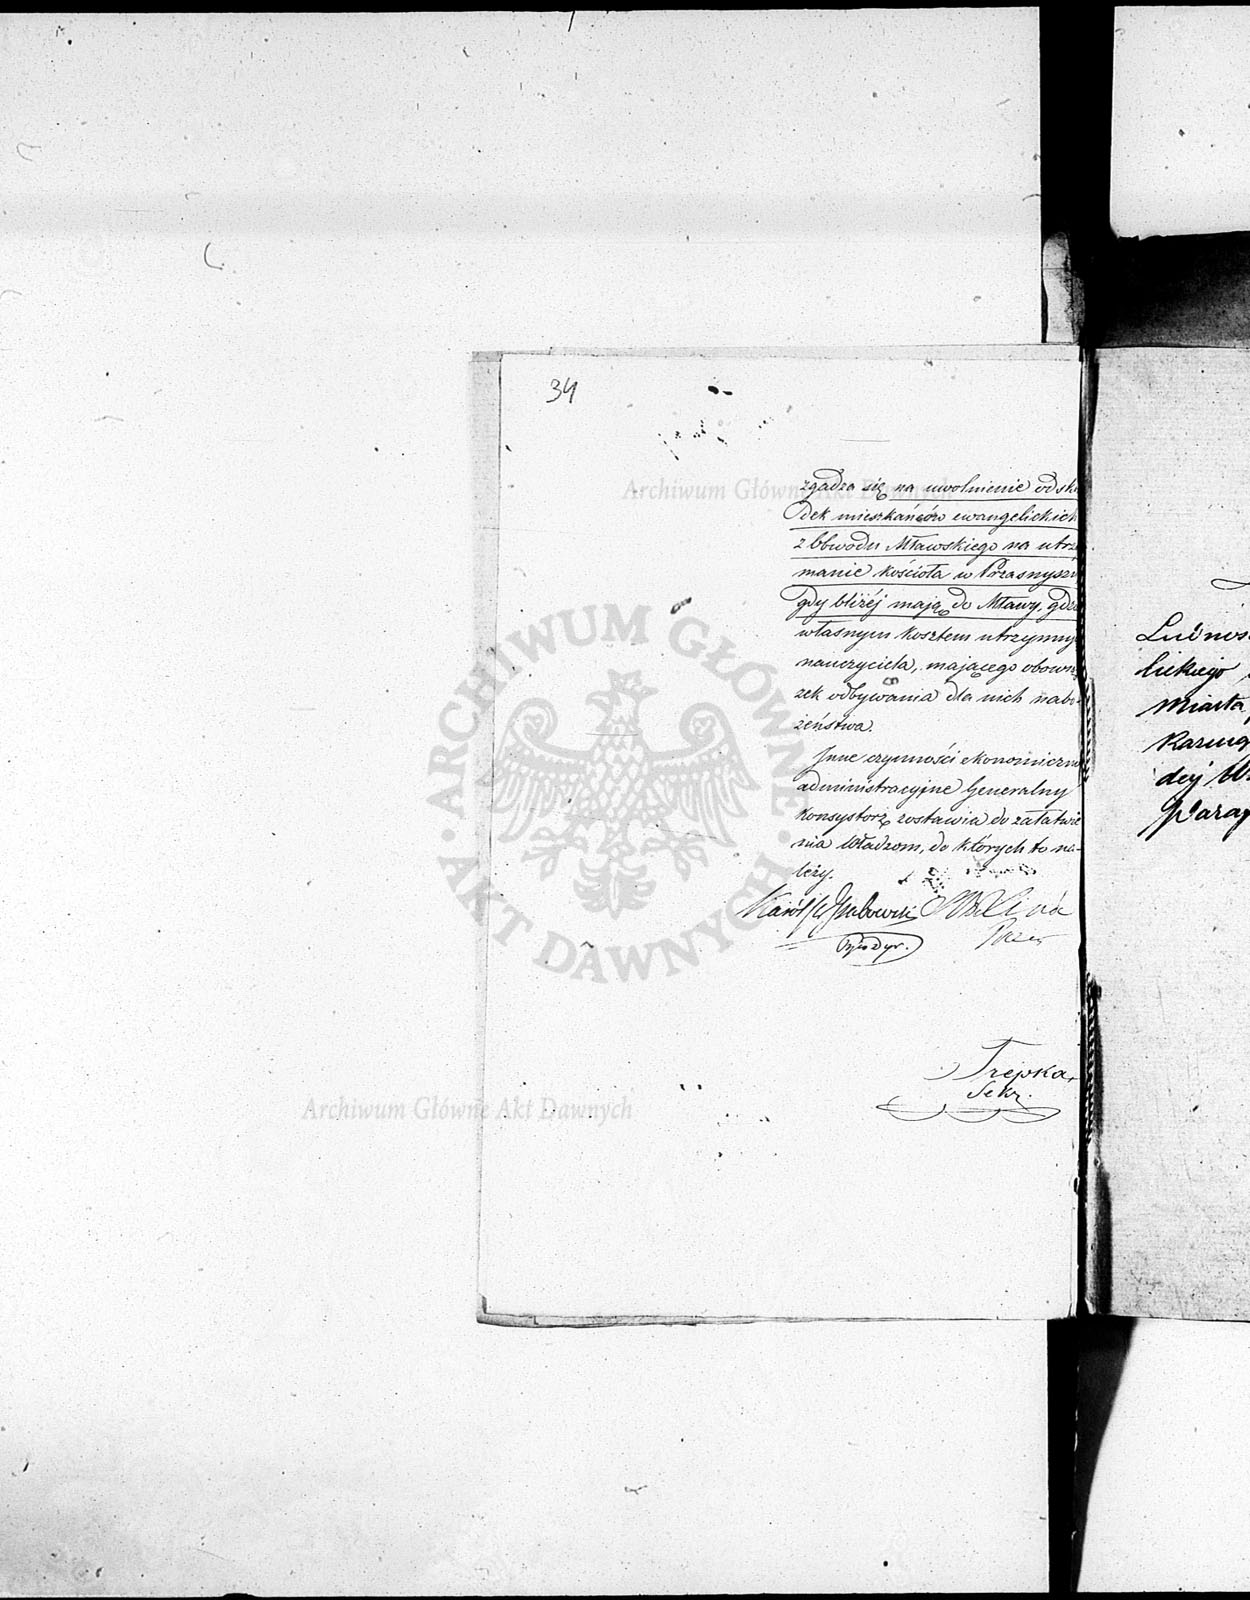 34
zgadza się na uwolnienie od skł
dek mieszkańców ewangelickich
z Obwodu Mławskiego na utrzy
manie kościoła w Przasnyszu
gdy bliżéj mają do Mławy, gdzie
własnym kosztem utrzymują
nauczyciela, mającego obowią
zek odbywania dla nich nabo-
żeństwa.
Inne czynności ekonomiczno
administracyjne Generalny
konsystorz zostawia do załatwie
nia Władzom, do których to na-
leży.
Karól
Trepka,
Sekr.
Ludnoś
lickiego
Miasta,
dej
Paraf
Archiwum Główne Akt Dawnych
Archiwum Główne Akt Dawnych
ARCHIWUM GŁÓWNE AKT DAWNYCH